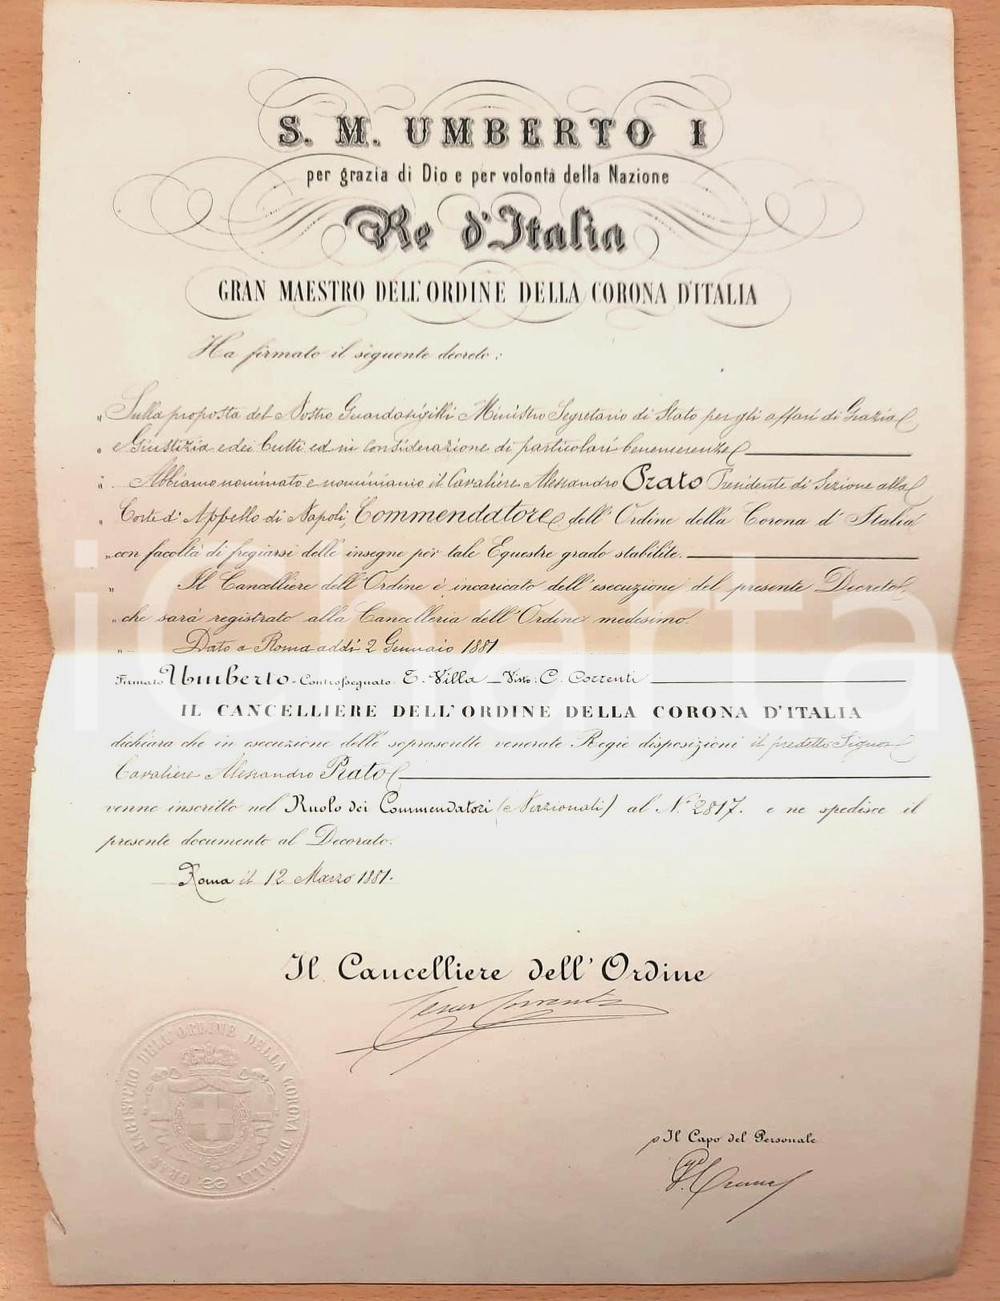 S. M. UMBERTO I
per grazia di Dio e per volontà della Nazione
Re d'Italia
GRAN MAESTRO DELL'ORDINE DELLA CORONA D'ITALIA
Ha firmato il seguente decreto:
„ Sulla proposta del Nostro Guardasigilli Ministro Segretario di Stato per gli affari di Grazia
„ e Giustizia e dei Culti ed in considerazione di particolari benemerenze
„ Abbiamo nominato e nominiamo il Cavaliere Alessandro Prato Presidente di Sezione alla
„ Corte d'Appello di Napoli, Commendatore dell'Ordine della Corona d'Italia
„ con facoltà di fregiarsi delle insegne per tale Equestre grado stabilite.
„ Il Cancelliere dell'Ordine è incaricato dell'esecuzione del presente Decreto,
„ che sarà registrato alla Cancelleria dell'Ordine medesimo.
„ Dato a Roma addì 2 Gennaio 1881
Firmato Umberto - Controssegnato: T. Villa - Visto: C. Correnti
IL CANCELLIERE DELL'ORDINE DELLA CORONA D'ITALIA
dichiara che in esecuzione delle soprascritte venerate Regie disposizioni il predetto Signor
Cavaliere Alessandro Prato
venne inscritto nel Ruolo dei Commendatori (Nazionali) al N.° 2817. e ne spedisce il
presente documento al Decorato.
Roma il 12 Marzo 1881.
Il Cancelliere dell'Ordine
Cesare Correnti
GRAN MAGISTERO DELL'ORDINE DELLA CORONA D'ITALIA
p Il Capo del Personale
iCharta